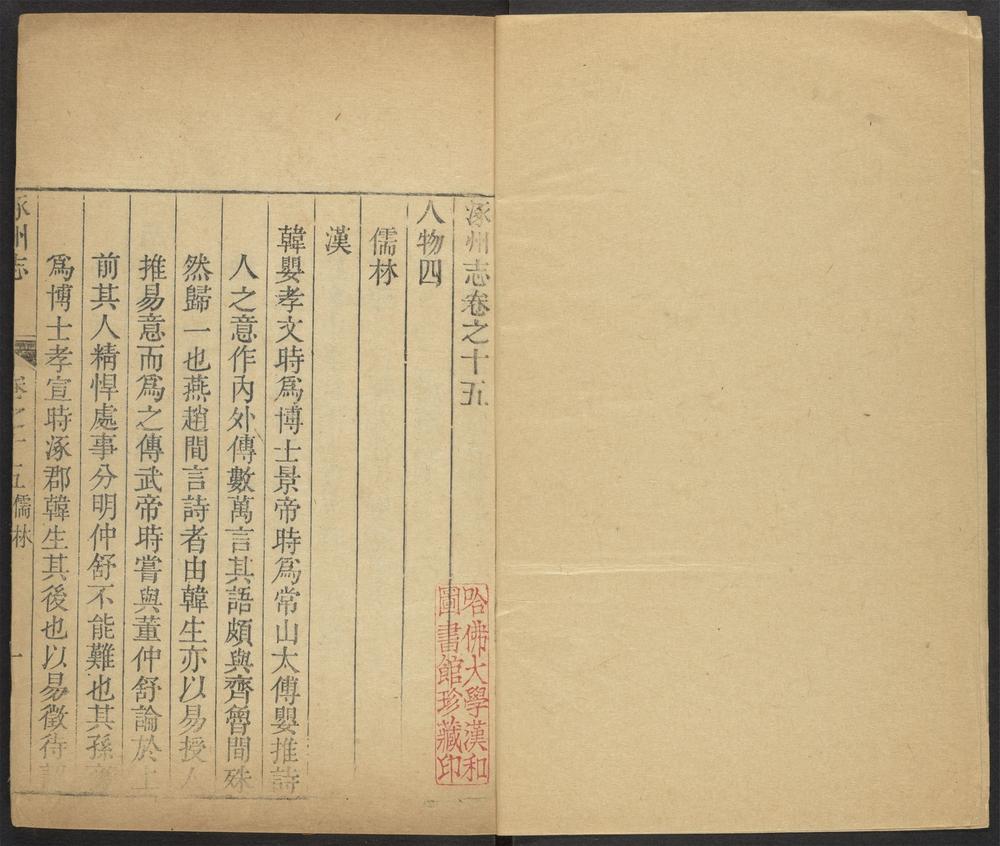 涿州志卷之十五
人物四
儒林
漢
韓嬰孝文時爲博士景帝時爲常山太傅嬰推詩
人之意作內外傳數萬言其語頗與齊魯間殊
然歸一也燕趙間言詩者由韓生亦以易授人
推易意而爲之傳武帝時嘗與董仲舒論於上
前其人精悍處事分明仲舒不能難也其孫商
爲博士孝宣時涿郡韓生其後也以易徵待詔
涿州志
卷之十五儒林
一
哈佛大學漢和
圖書館珍藏印